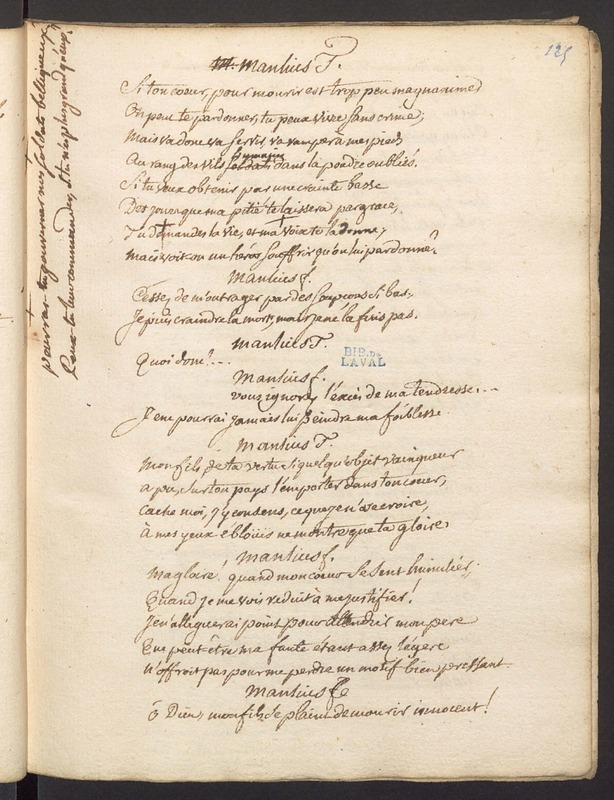 125
M. Manlius T.
Si ton coeur, pour mourir est trop peu magnanime
On peu te pardonner, tu peux vivre sans crime;
Mais va donc va servir, va ramper à mes pieds
Au rang des vils humains soldats dans la poudre oubliés.
Si tu veux obtenir par une crainte basse
Des jours que ma pitié te laissera par grace,
Tu demandes la vie, et ma voix te la donne;
mais voit-on un héros souffrir qu'on lui pardonne?
Manlius f.
Cessez de m'outrager par des soupçons si bas.
Je puis craindre la mort, mais je ne la fuis pas.
Manlius T.
Quoi donc?...
BIB. DE
LAVAL
Manlius f.
vous ignorez l'excès de ma tendresse...
Je ne pourrai jamais lui peindre ma foiblesse.
Manlius T.
Mon fils, de ta vertu si quelqu'objet vainqueur
a pu, sur ton pays l'emporter dans ton coeur,
Cache moi, j'y consens, ce que je n'ose croire,
à mes yeux éblouïs ne montre que ta gloire.
Manlius f.
Ma gloire! quand mon coeur se sent humilier;
Quand je me vois réduit à me justifier!
Je n'alléguerai point pour attendrir mon pere
Que peut être ma faute étant assez légere
N'offroit pas pour me perdre un motif bien pressant.
Manlius
ô Dieu, mon fils se plaint de mourir innocent!
pourras-tu gouverner nos soldats belliqueux
Peux-tu leur commander, si tu n'es plus grand qu'eux.